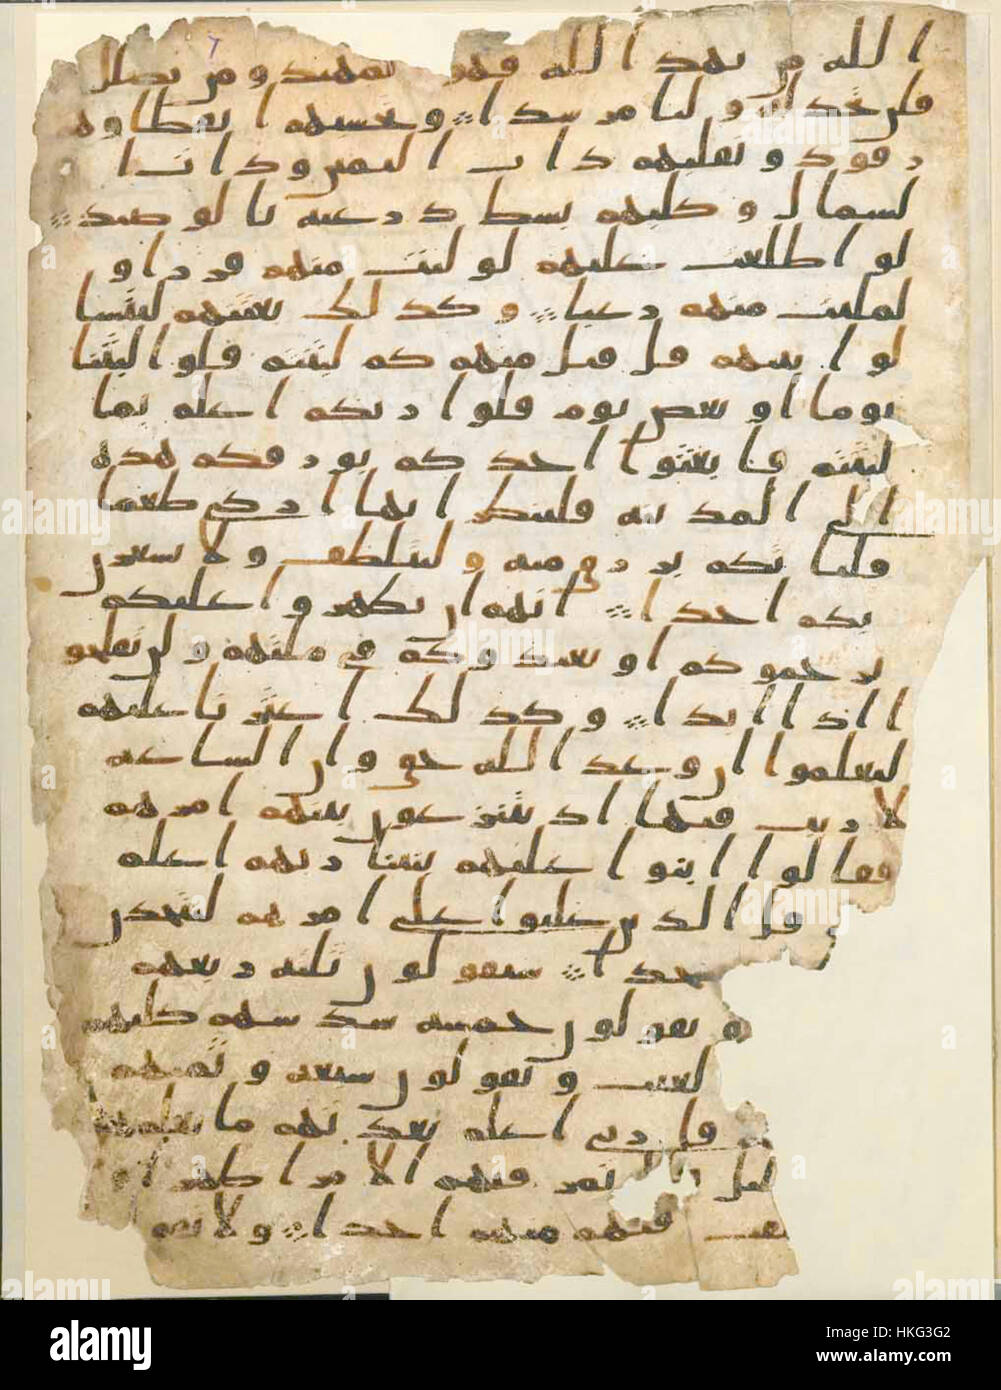 الله من يهد الله فهو المهتد ومن يضلل
فلن تجد له وليا مرشدا وتحسبهم ايقاظا وهم
رقود ونقلبهم ذات اليمين وذات ا
لشمال وكلبهم بسط ذرعيه بالوصيد
لو اطلعت عليهم لوليت منهم فرارا و
لملت منهم رعبا وكذلك بعثنهم ليتسا
لوا بينهم قل قيل منهم كم لبثتم قلوا لبثنا
يوما او بعض يوم قلوا ربكم اعلم بما
لبثتم فابعثوا احدكم بورقكم هذه
الى المدينه فلينظر ايها ازكى طعما
فلياتكم برزق منه وليتلطف ولا يشعرن
بكم احدا انهم ان يظهروا عليكم
يرجموكم او يعيدوكم في ملتهم ولن تفلحو
ا اذا ابدا وكذلك اعثرنا عليهم
ليعلموا ان وعد الله حق وان الساعه
لا ريب فيها اذ يتنزعون بينهم امرهم
فقالوا ابنوا عليهم بنينا ربهم اعلم
قل الذين غلبوا على امرهم لنتخذن
سجدا سيقولون ثلثه ربعهم
ويقولون خمسه سدسهم كلبهم
لغيب ويقولون سبعه وثمنهم
قل ربي اعلم بعدتهم ما يعلمهم
ليل تمر فيهم الا مرا ظهرا
فيهم منهم احدا ولا تقو
alamy
Image ID: HKG3G2
www.alamy.com